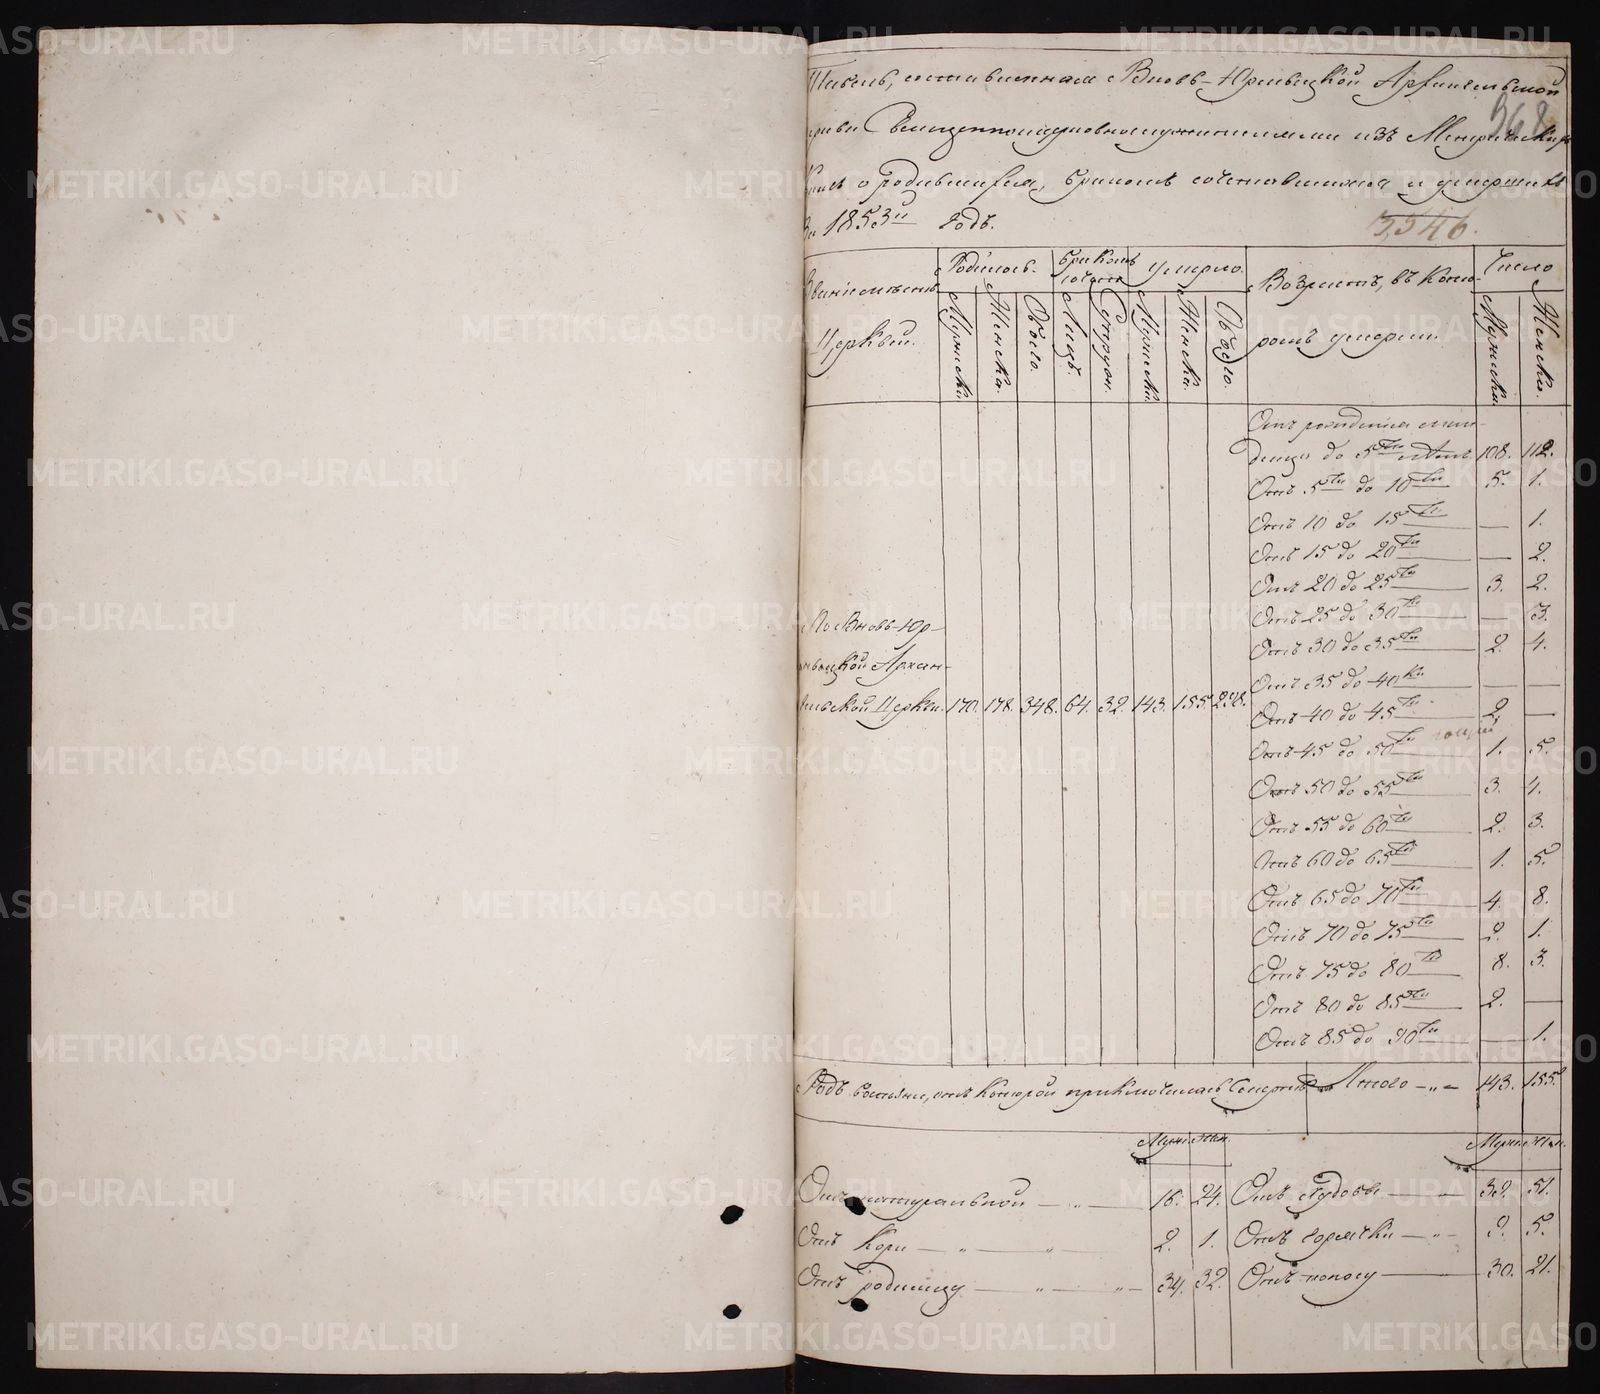 Табель, составленная Вновь-Юрмыцкой Архангельской
церкви Священноцерковнослужителями изъ Метрическихъ
книгъ о родившихся, бракомъ сочетавшихся и умершихъ
за 1853й годъ.
368
3,546.
Званіе мѣстъ
Церквей.
Родилось.
Бракомъ
сочет.
Умерло.
Возрастъ, въ кото-
ромъ умерли.
Число
Мужеска.
Женска.
Обоего.
Лицъ.
Супруж.
Мужеска.
Женска.
Обоего.
Мужеска.
Женска.
Отъ рожденія мла-
денцы до 5ти лѣтъ 108. 112.
Отъ 5ти до 10ти 5. 1.
Отъ 10 до 15ти — 1.
Отъ 15 до 20ти — 2.
Отъ 20 до 25ти 3. 2.
Отъ 25 до 30ти — 3.
Отъ 30 до 35ти 2. 4.
Отъ 35 до 40ка — —
Отъ 40 до 45ти 2. —
Отъ 45 до 50ти 1. 5.
Отъ 50 до 55ти 3. 4.
Отъ 55 до 60ти 2. 3.
Отъ 60 до 65ти 1. 5.
Отъ 65 до 70ти 4. 8.
Отъ 70 до 75ти 2. 1.
Отъ 75 до 80ти 8. 3.
Отъ 80 до 85ти 2. —
Отъ 85 до 90ти — 1.
По Вновь-Юр-
мыцкой Архан-
гельской Церкви. 170. 178. 348. 64. 32. 143. 155. 298.
Родъ болѣзни, отъ которой приключилась смерть
Итого 143. 155.
Муж. Жен.
Муж. Жен.
Отъ натуральной 16. 24. Отъ худобы 39. 51.
Отъ кори 2. 1. Отъ горячки 9. 5.
Отъ родимцу 34. 32. Отъ поносу 30. 21.
METRIKI.GASO-URAL.RU